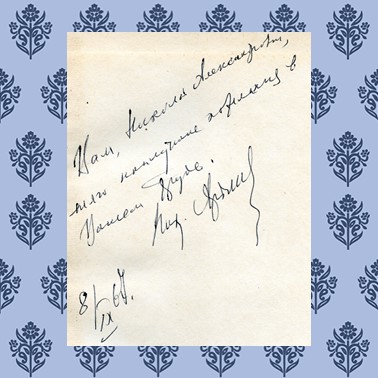 Вам, Николай Александрович,
наилучшие пожелания в
Вашем труде.
8/IX 67.